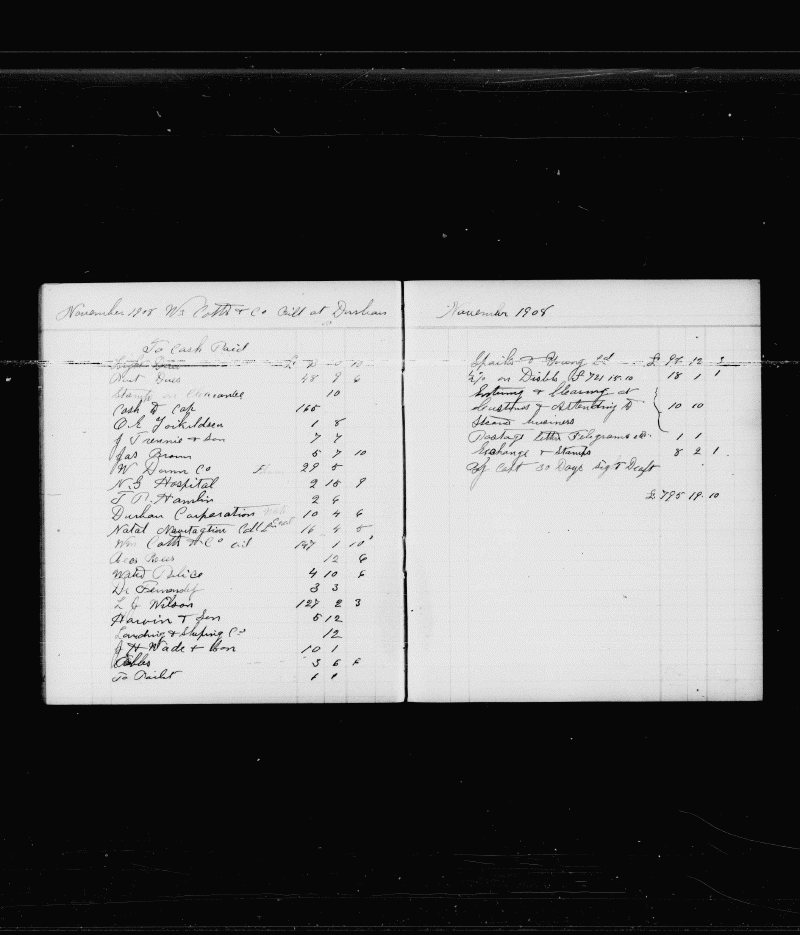 November 1908 Wm Cotts & Co Bill at Durban
To Cash Paid
Light Dues £
Port Dues 48 9 6
Stamp on Clearance 10
Cash to Capt 165
C.E. Torkildsen 1 8
J Trennie & Son 7 7
Jas Brown 5 7 10
W Dunn Co 29 5
N.G Hospital 2 15 9
T.P. Hamlin 2 6
Durban Corporation 10 4 6
Natal Navitagtion Coll 16 4 5
Wm Cotts & Co 147 1 10
12 6
Water Police 4 10 6
Dr Fernandez 3 3
L G Wilson 127 2 3
Harvin & Son 5 12
Landing & Shiping Co 12
J H Wade & Son 10 1
3 6 6
To Pailet
November 1908
Sparks & Young Ld £ 94 12 3
2½% on Disbls £721 18.10 18 1 1
Entering & Clearing at
Customs & Attending to 10 10
Steams business
Postage Letter Telegrams &c. 1 1
Exchange & Stamps 8 2 1
By Capt 30 Days sight Draft
£ 795 19 10